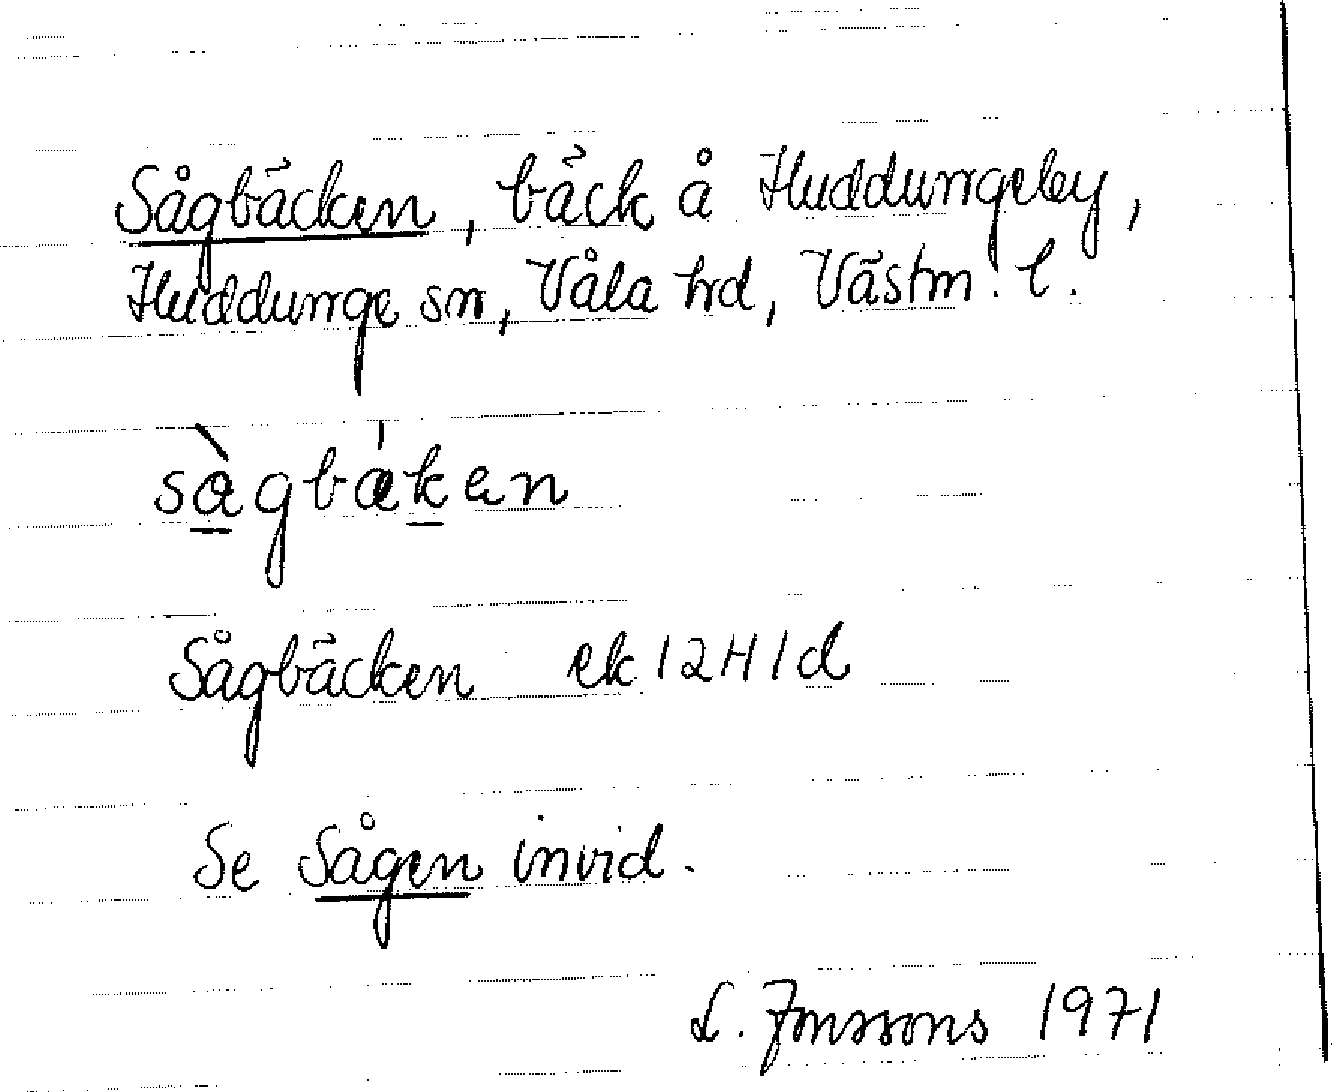 Sågbäcken, bäck å Huddungeby,
Huddunge sn, Våla hd, Västm. l.
sàgbäken
Sågbäcken ek 12H1d
Se Sågen invid.
1971